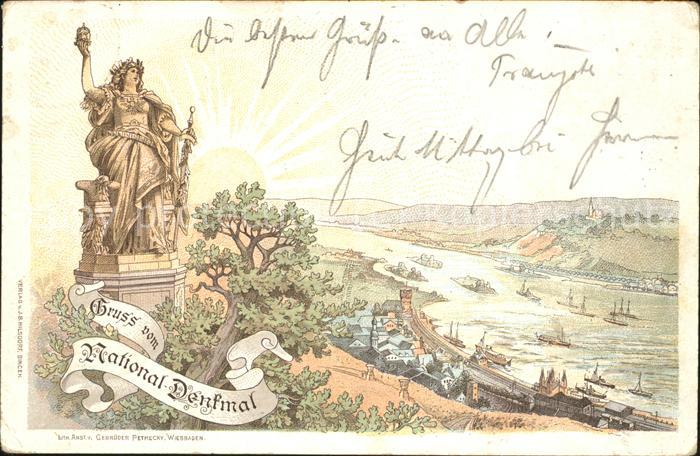 Die besten Grüße an Alle
Heute Mittag bei
Gruss vom
National-Denkmal
VERLAG v. J.B. HILSDORF, BINGEN.
LITH. ANST. V. GEBRÜDER PETMECKY, WIESBADEN.